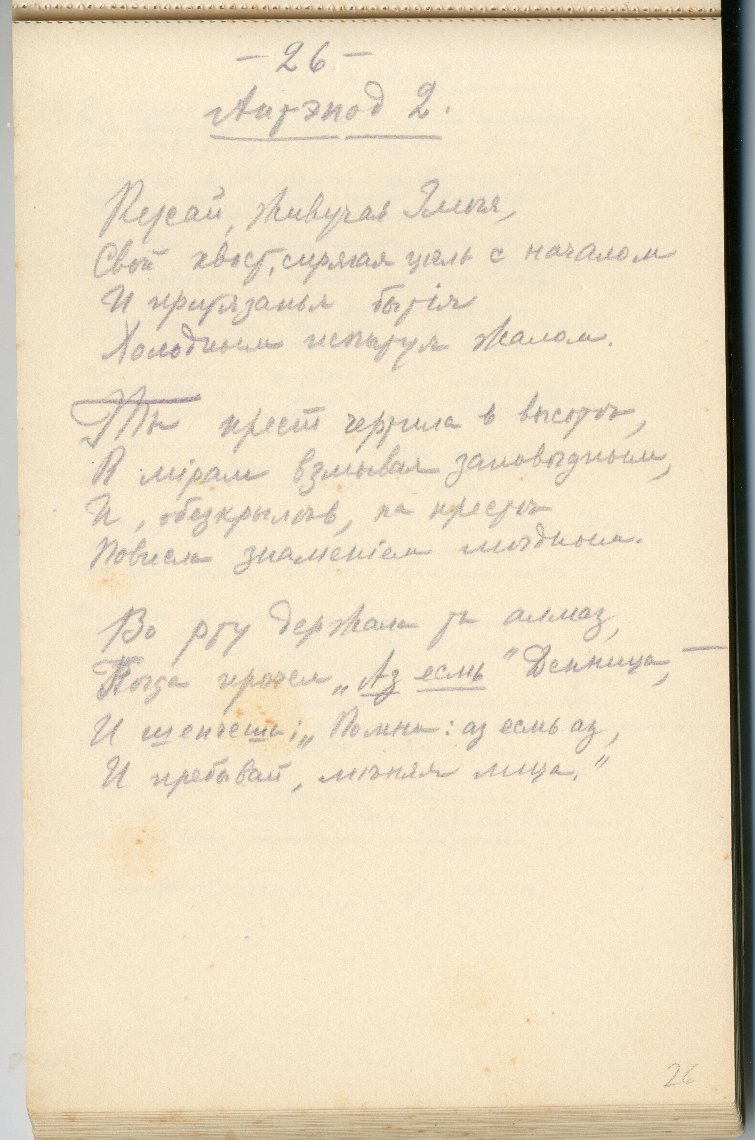 - 26 -
Антэпод 2.
Кусай, живучая Змея,
Свой хвост, спрягая цѣль с началом
И притязанья бытія
Холодным испытуя жалом.
Ты крест чертила в высотѣ,
К мірам взмывая заповѣдным,
И, обезкрылѣв, на крестѣ
Повисла знаменіем мѣдным.
Во рту держала ты алмаз,
Когда прочел „Аз есмь" Денница, —
И шепчешь: „Помни: аз есмь аз,
И пребывай, мѣняя лица."
26